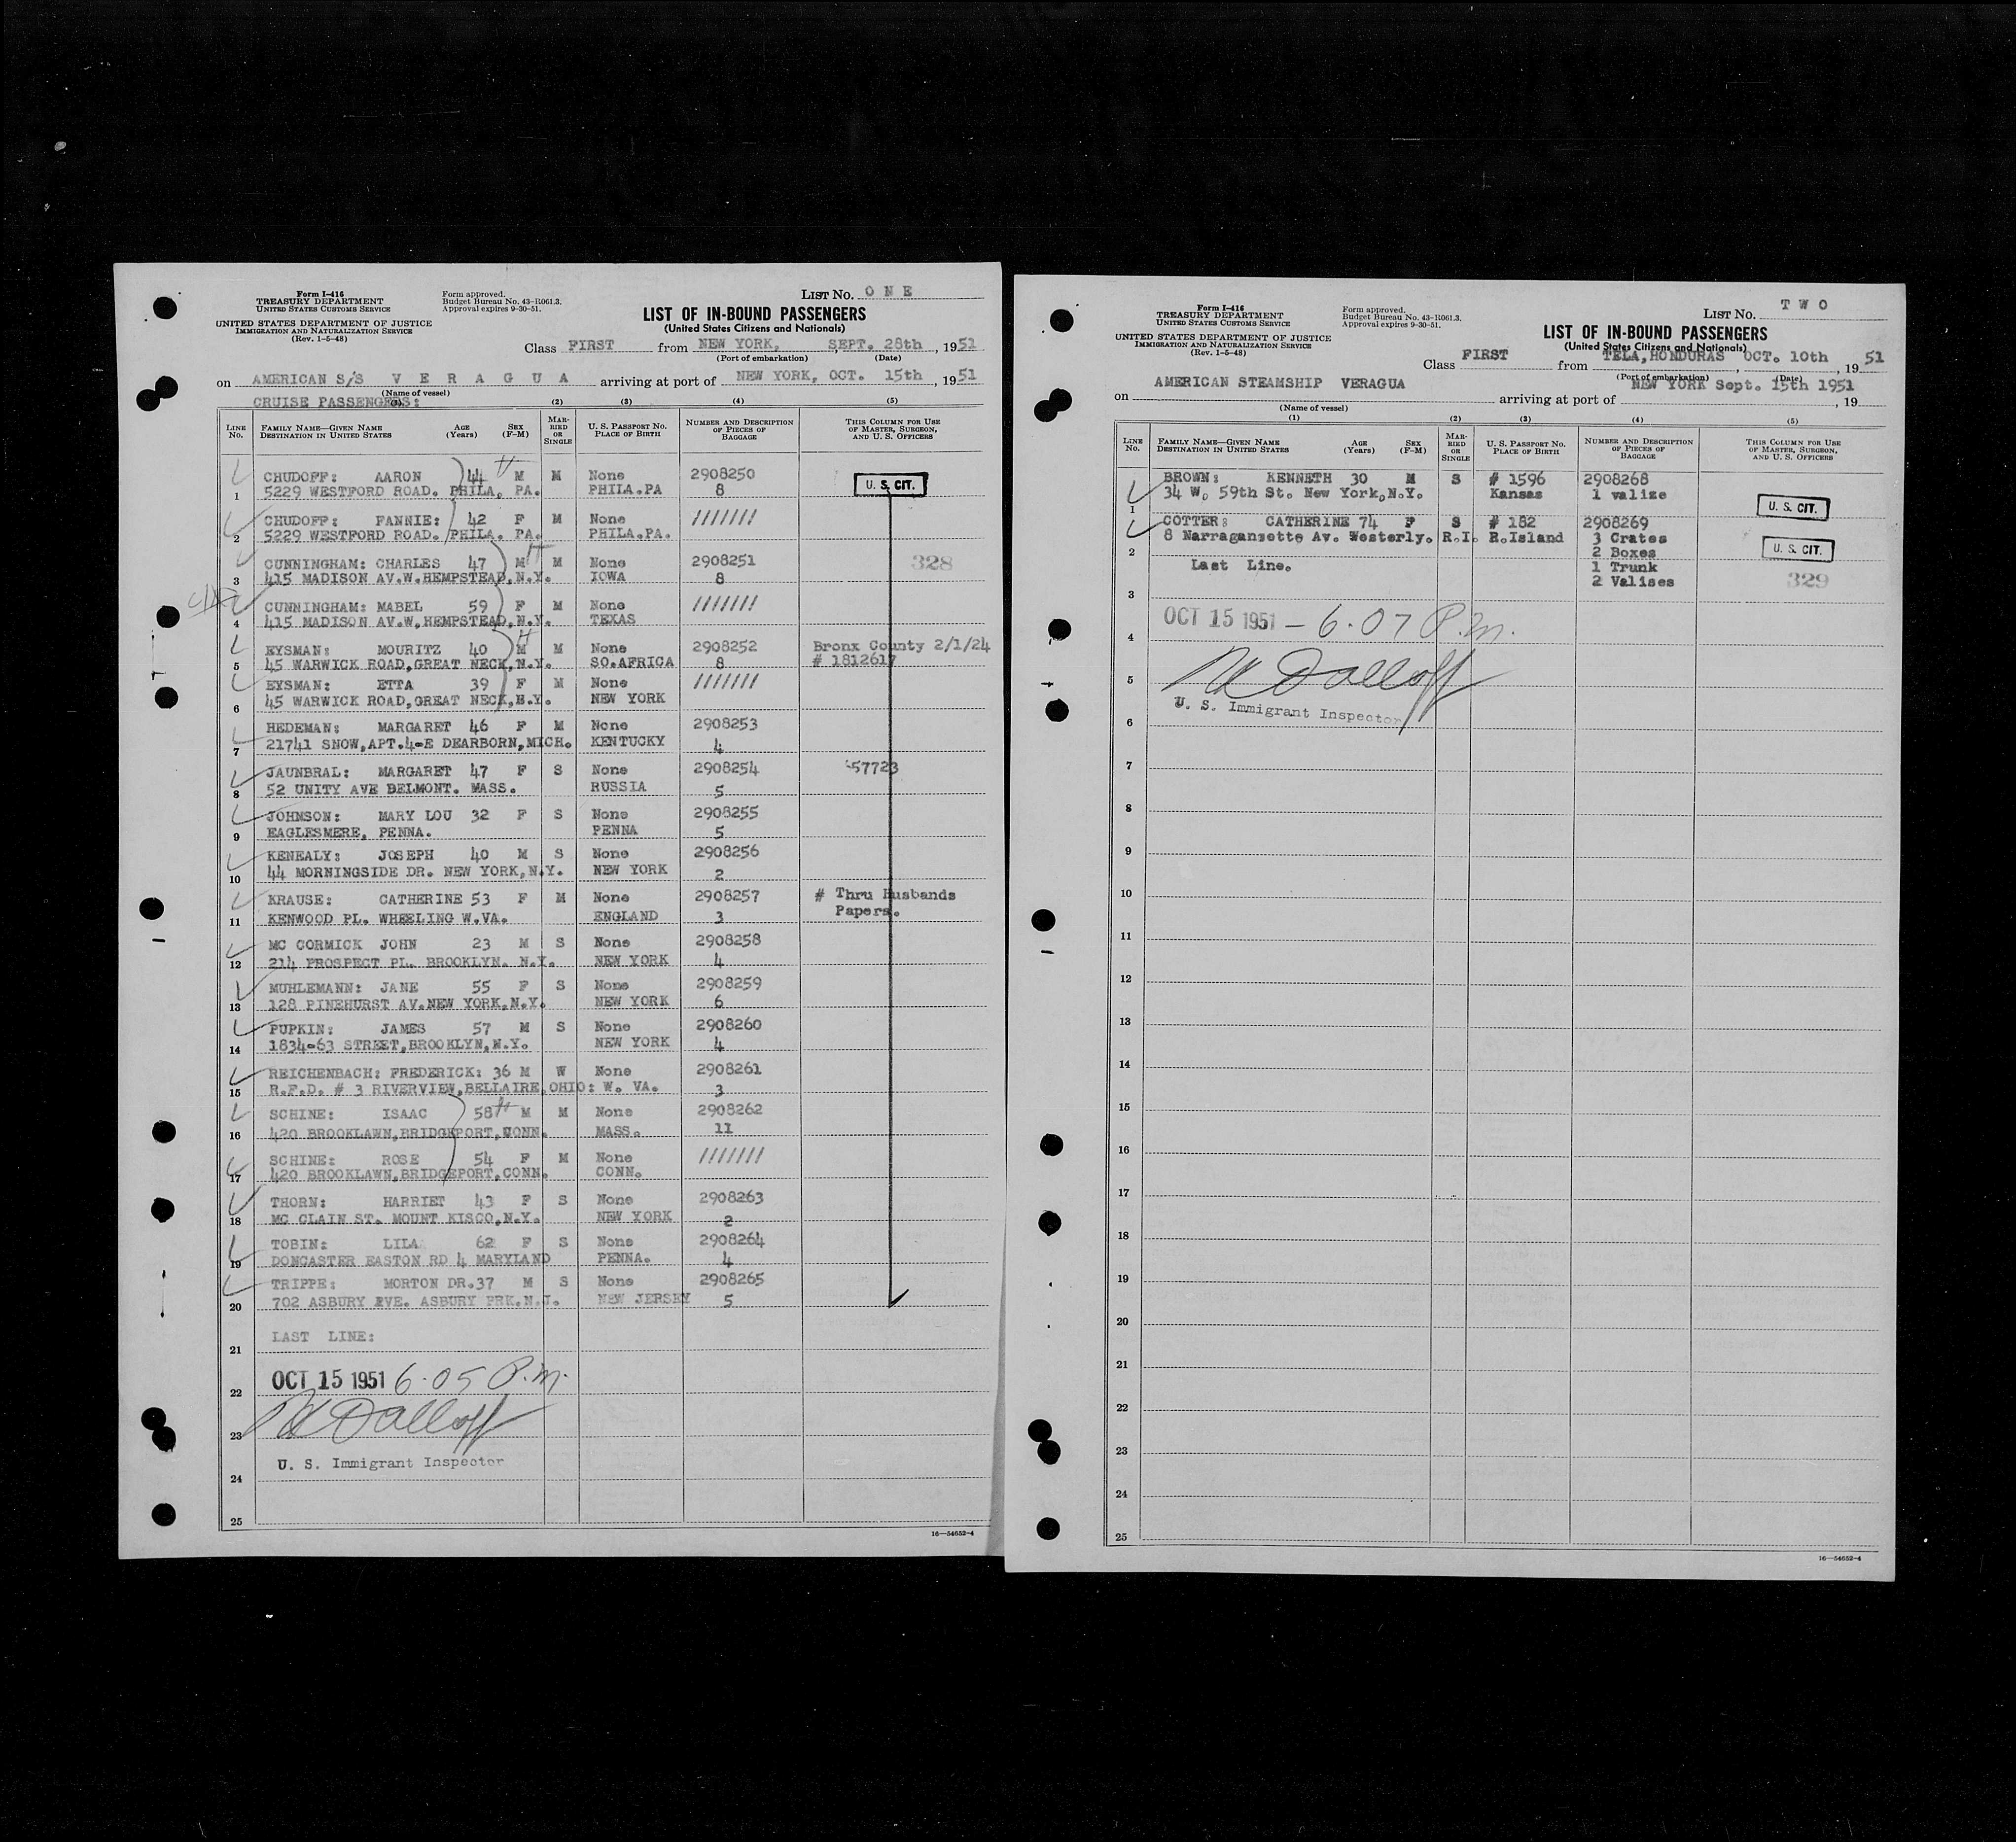 Form I-416
TREASURY DEPARTMENT
UNITED STATES CUSTOMS SERVICE
UNITED STATES DEPARTMENT OF JUSTICE
IMMIGRATION AND NATURALIZATION SERVICE
(Rev. 1-5-48)
Form approved.
Budget Bureau No. 43-R061.3.
Approval expires 9-30-51.
LIST No. O N E
LIST OF IN-BOUND PASSENGERS
(United States Citizens and Nationals)
Class FIRST from NEW YORK, SEPT. 28th, 1951
(Port of embarkation) (Date)
on AMERICAN S/S V E R A G U A arriving at port of NEW YORK, OCT. 15th, 1951
(Name of vessel)
CRUISE PASSENGERS:
(1) (2) (3) (4) (5)
LINE No. FAMILY NAME—GIVEN NAME DESTINATION IN UNITED STATES AGE (Years) SEX (F-M) MARRIED OR SINGLE U. S. PASSPORT NO. PLACE OF BIRTH NUMBER AND DESCRIPTION OF PIECES OF BAGGAGE THIS COLUMN FOR USE OF MASTER, SURGEON, AND U. S. OFFICERS
CHUDOFF: AARON 44 H M M None 2908250 U. S. CIT.
1 5229 WESTFORD ROAD. PHILA, PA. PHILA.PA 8
CHUDOFF: FANNIE: 42 F M None ////////
2 5229 WESTFORD ROAD. PHILA. PA. PHILA.PA.
CUNNINGHAM: CHARLES 47 M H M None 2908251 328
3 415 MADISON AV.W.HEMPSTEAD,N.Y. IOWA 8
CUNNINGHAM: MABEL 59 F M None ////////
4 415 MADISON AV.W,HEMPSTEAD,N.Y. TEXAS
EYSMAN: MOURITZ 40 H M M None 2908252 Bronx County 2/1/24
5 45 WARWICK ROAD,GREAT NECK,N.Y. SO.AFRICA 8 # 1812617
EYSMAN: ETTA 39 F M None ////////
6 45 WARWICK ROAD,GREAT NECK,N.Y. NEW YORK
HEDEMAN: MARGARET 46 F M None 2908253
7 21741 SNOW,APT.4-E DEARBORN,MICH. KENTUCKY 4
JAUNBRAL: MARGARET 47 F S None 2908254 57723
8 52 UNITY AVE BELMONT. MASS. RUSSIA 5
JOHNSON: MARY LOU 32 F S None 2908255
9 EAGLESMERE, PENNA. PENNA 5
KENEALY: JOSEPH 40 M S None 2908256
10 44 MORNINGSIDE DR. NEW YORK,N.Y. NEW YORK 2
KRAUSE: CATHERINE 53 F M None 2908257 # Thru Husbands
11 KENWOOD PL. WHEELING W.VA. ENGLAND 3 Papers.
MC CORMICK JOHN 23 M S None 2908258
12 214 PROSPECT PL. BROOKLYN. N.Y. NEW YORK 4
MUHLEMANN: JANE 55 F S None 2908259
13 128 PINEHURST AV.NEW YORK,N.Y. NEW YORK 6
PUPKIN: JAMES 57 M S None 2908260
14 1834-63 STREET,BROOKLYN,N.Y. NEW YORK 4
REICHENBACH: FREDERICK: 36 M W None 2908261
15 R.F.D. # 3 RIVERVIEW,BELLAIRE,OHIO: W. VA. 3
SCHINE: ISAAC 58 H M M None 2908262
16 420 BROOKLAWN,BRIDGEPORT,CONN. MASS. 11
SCHINE: ROSE 54 F M None ////////
17 420 BROOKLAWN,BRIDGEPORT,CONN. CONN.
THORN: HARRIET 43 F S None 2908263
18 MC CLAIN ST. MOUNT KISCO,N.Y. NEW YORK 2
TOBIN: LILA 62 F S None 2908264
19 DONCASTER EASTON RD 4 MARYLAND PENNA. 4
TRIPPE: MORTON DR.37 M S None 2908265
20 702 ASBURY AVE. ASBURY PRK.N.J. NEW JERSEY 5
LAST LINE:
21
OCT 15 1951 6.05 P.m.
22
M Dalloff
23
U. S. Immigrant Inspector
24
25
16—54652-4
Form I-416
TREASURY DEPARTMENT
UNITED STATES CUSTOMS SERVICE
UNITED STATES DEPARTMENT OF JUSTICE
IMMIGRATION AND NATURALIZATION SERVICE
(Rev. 1-5-48)
Form approved.
Budget Bureau No. 43-R061.3.
Approval expires 9-30-51.
LIST No. T W O
LIST OF IN-BOUND PASSENGERS
(United States Citizens and Nationals)
Class FIRST from TELA,HONDURAS OCT. 10th, 1951
(Port of embarkation) (Date)
on AMERICAN STEAMSHIP VERAGUA arriving at port of NEW YORK Sept. 15th 1951, 19
(Name of vessel)
(1) (2) (3) (4) (5)
LINE No. FAMILY NAME—GIVEN NAME DESTINATION IN UNITED STATES AGE (Years) SEX (F-M) MARRIED OR SINGLE U. S. PASSPORT NO. PLACE OF BIRTH NUMBER AND DESCRIPTION OF PIECES OF BAGGAGE THIS COLUMN FOR USE OF MASTER, SURGEON, AND U. S. OFFICERS
BROWN: KENNETH 30 M S # 1596 2908268
1 34 W. 59th St. New York,N.Y. Kansas 1 valize U. S. CIT.
COTTER: CATHERINE 74 F S # 182 2908269
8 Narragansette Av. Westerly. R.I. R.Island 3 Crates
2 2 Boxes U. S. CIT.
Last Line. 1 Trunk
2 Valises 329
3
OCT 15 1951 — 6.07 P.m.
4
M Dalloff
5
U. S. Immigrant Inspector
6
7
8
9
10
11
12
13
14
15
16
17
18
19
20
21
22
23
24
25
16—54652-4